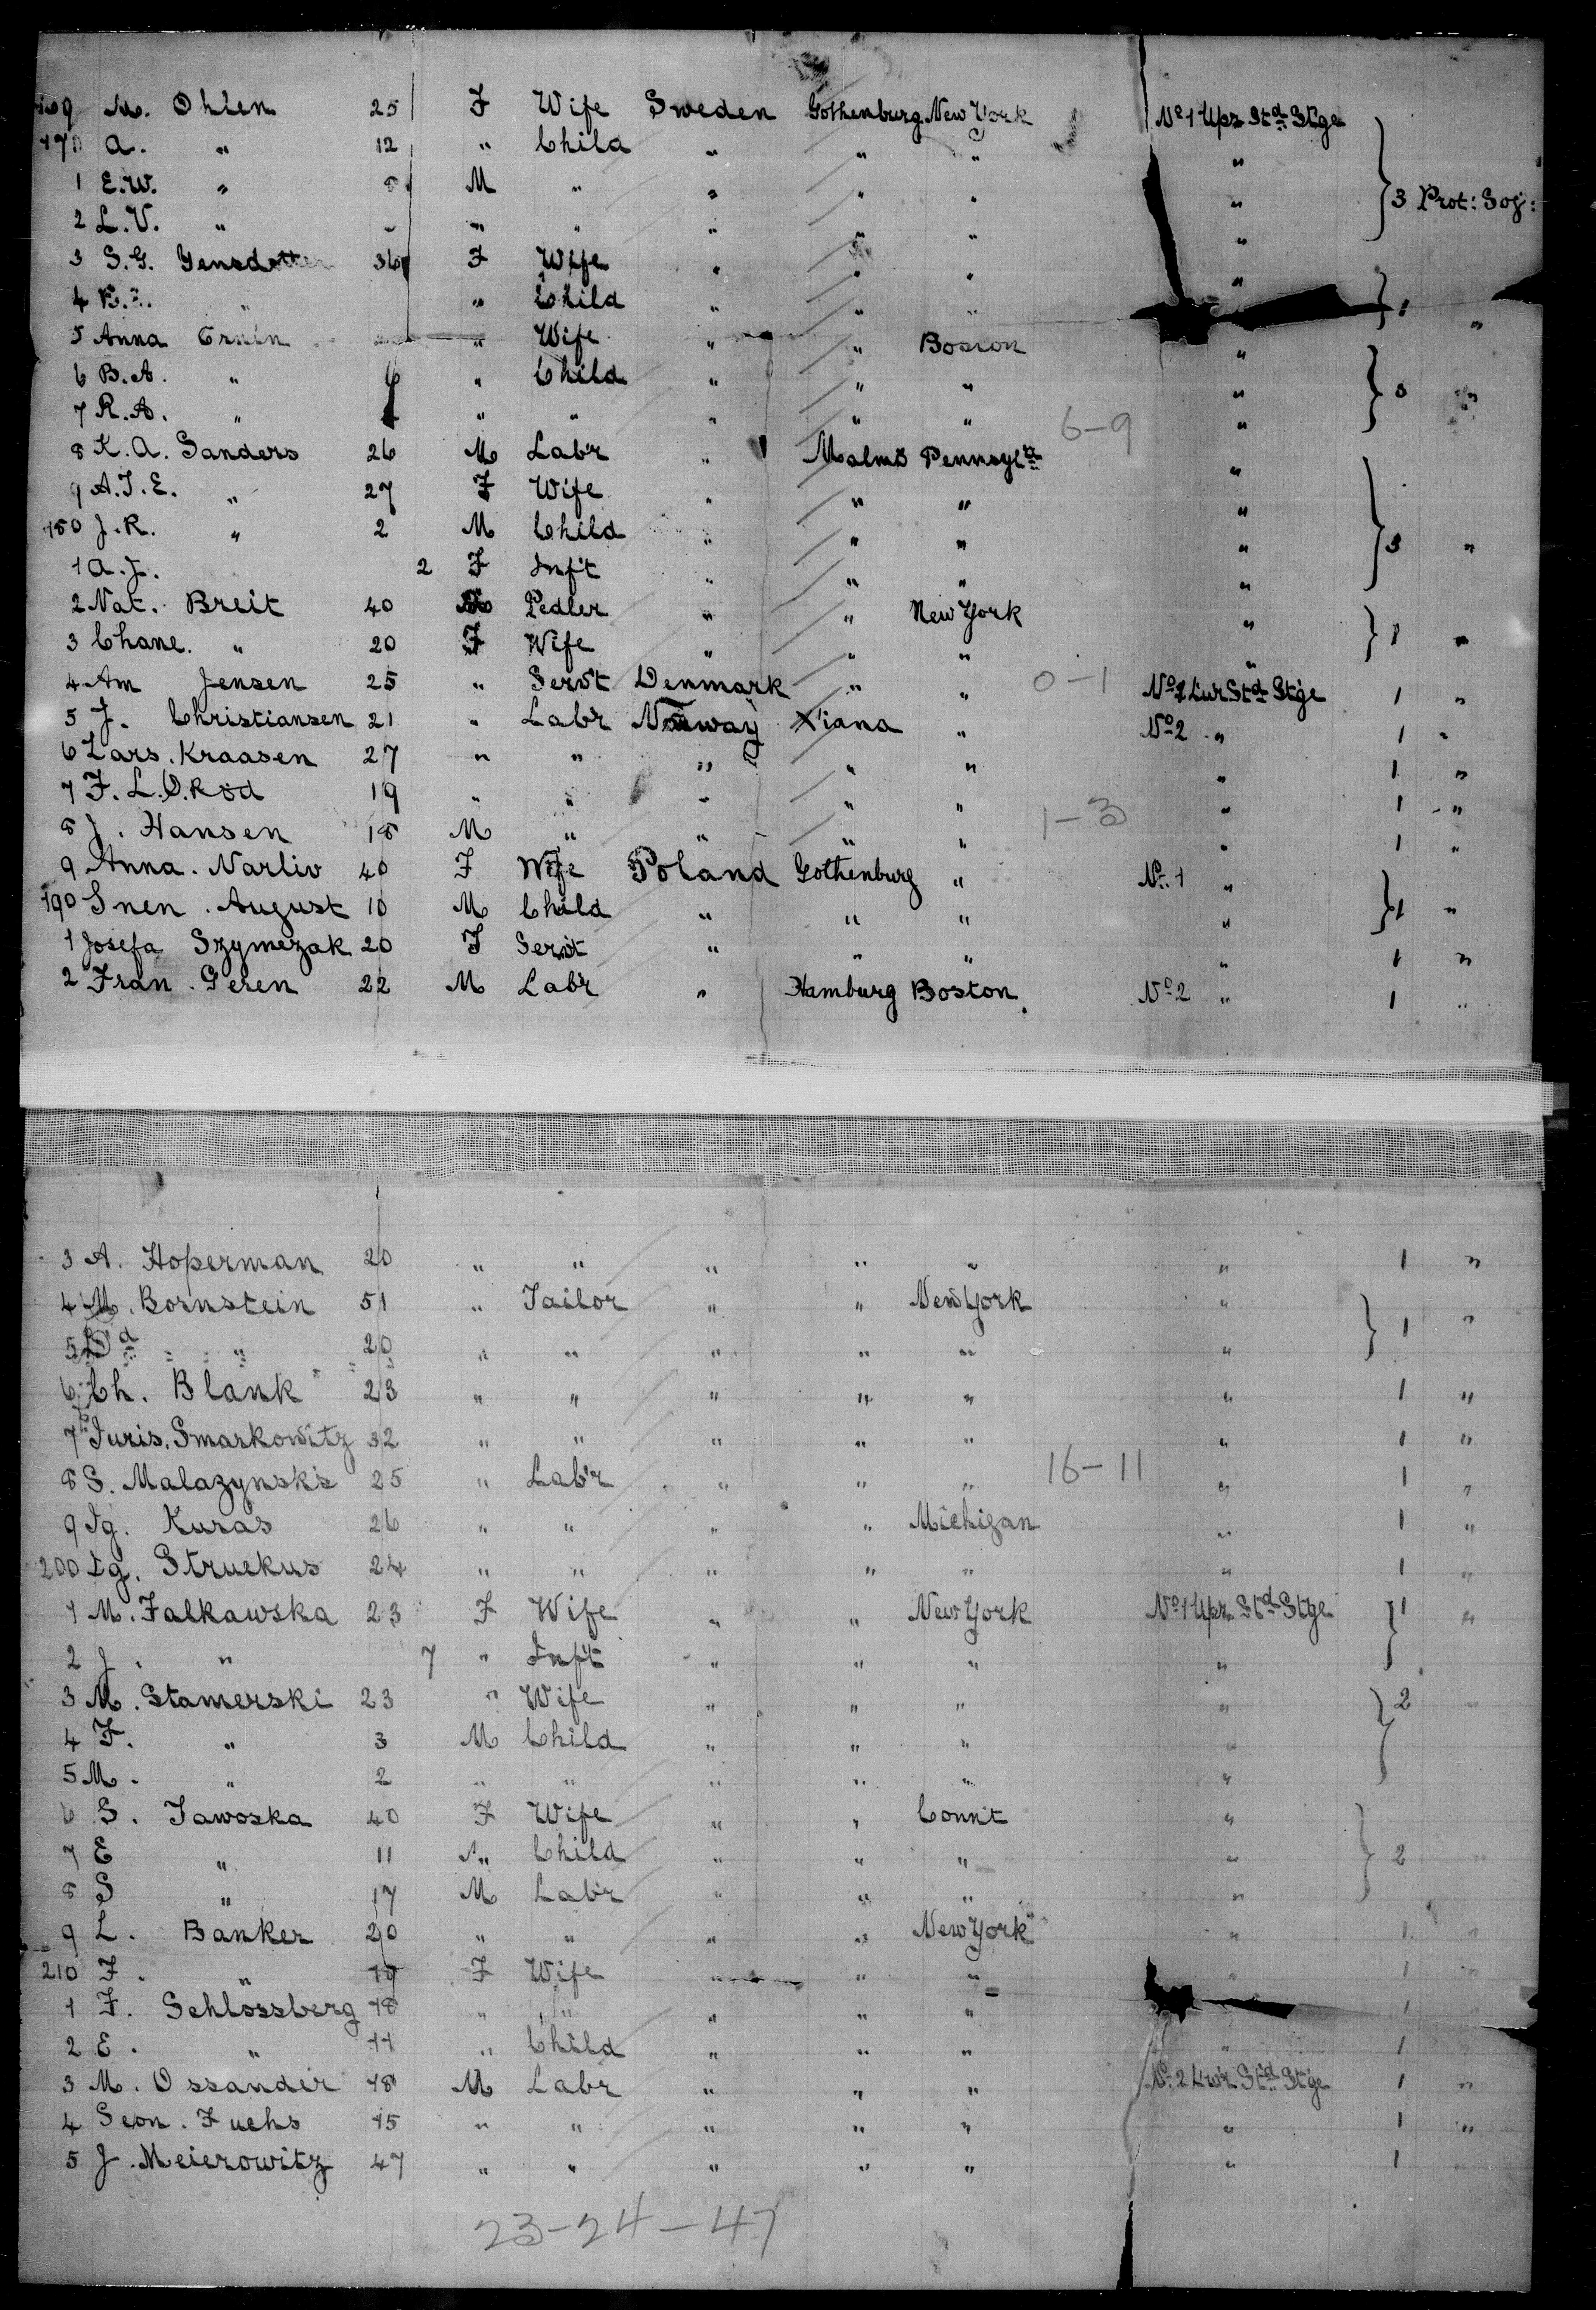 169 M. Ohlen 25 F Wife Sweden Gothenburg New York No 1 Upr Std Stge
170 A. " 12 " Child " " " " } 3 Prot: Soj:
1 E.W. " 8 M " " " " "
2 L.V. " " " " " " "
3 S.G. Yensdotter 36 F Wife " " " "
4 B. " " Child " " " " } 1 "
5 Anna " Wife " " Boston "
6 B.A. " 6 " Child " " " " } "
7 R.A. " " " " " " "
6-9
8 K.A. Sanders 26 M Lab'r " Malmö Pennsyl'a "
9 A.J.E. " 27 F Wife " " " "
180 J.R. " 2 M Child " " " " } 3 "
1 A.J. 2 F Inf't " " " "
2 Nat. Breit 40 M Pedler " " New York "
3 Chane. " 20 F Wife " " " " } 1 "
4 Am Jensen 25 " Serv't Denmark " " 0-1 No 1 Lwr Std Stge 1 "
5 J. Christiansen 21 " Lab'r Norway X'iana " No 2 " 1 "
6 Lars. Kraasen 27 " " " " " " 1 "
7 F. L.O. Röd 19 " " " " " " 1 "
1-3
8 J. Hansen 18 M " " " " " 1 "
9 Anna. Narliv 40 F Wife Poland Gothenburg " No 1 "
190 Snen. August 10 M Child " " " " } 1 "
1 Josefa Szymezak 20 F Serv't " " " " 1 "
2 Fran. Geren 22 M Lab'r " Hamburg Boston. No 2 " 1 "
3 A. Hoperman 20 " " " " " " 1 "
4 M. Bornstein 51 " Tailor " " New York "
5 " 20 " " " " " " } 1 "
6 Ch. Blank 23 " " " " " " 1 "
7 Juris. Smarkowitz 32 " " " " " " 1 "
8 S. Malazynskis 25 " Lab'r " " " 16-11 " 1 "
9 Ig. Kuras 26 " " " " Michigan " 1 "
200 Ig. Struckus 24 " " " " " " 1 "
1 M. Falkawska 23 F Wife " " New York No 1 Upr Std Stge } 1 "
2 J. " 7 " Inf't " " " "
3 M. Stamerski 23 " Wife " " " " } 2 "
4 F. " 3 M Child " " " "
5 M. " 2 " " " " " "
6 S. Jawoska 40 F Wife " " Conn't "
7 E " 11 " Child " " " " } 2 "
8 S " 17 M Lab'r " " " "
9 L. Banker 20 " " " " New York " 1 "
210 F. " 19 F Wife " " " " 1 "
1 F. Schlossberg 18 " " " " " 1 "
2 E. " 11 " Child " " " " 1 "
3 M. Ossander 18 M Lab'r " " " No 2 Lwr Std Stge 1 "
4 Seon. Fuchs 15 " " " " " " 1 "
5 J. Meierowitz 47 " " " " " " 1 "
23-24-47